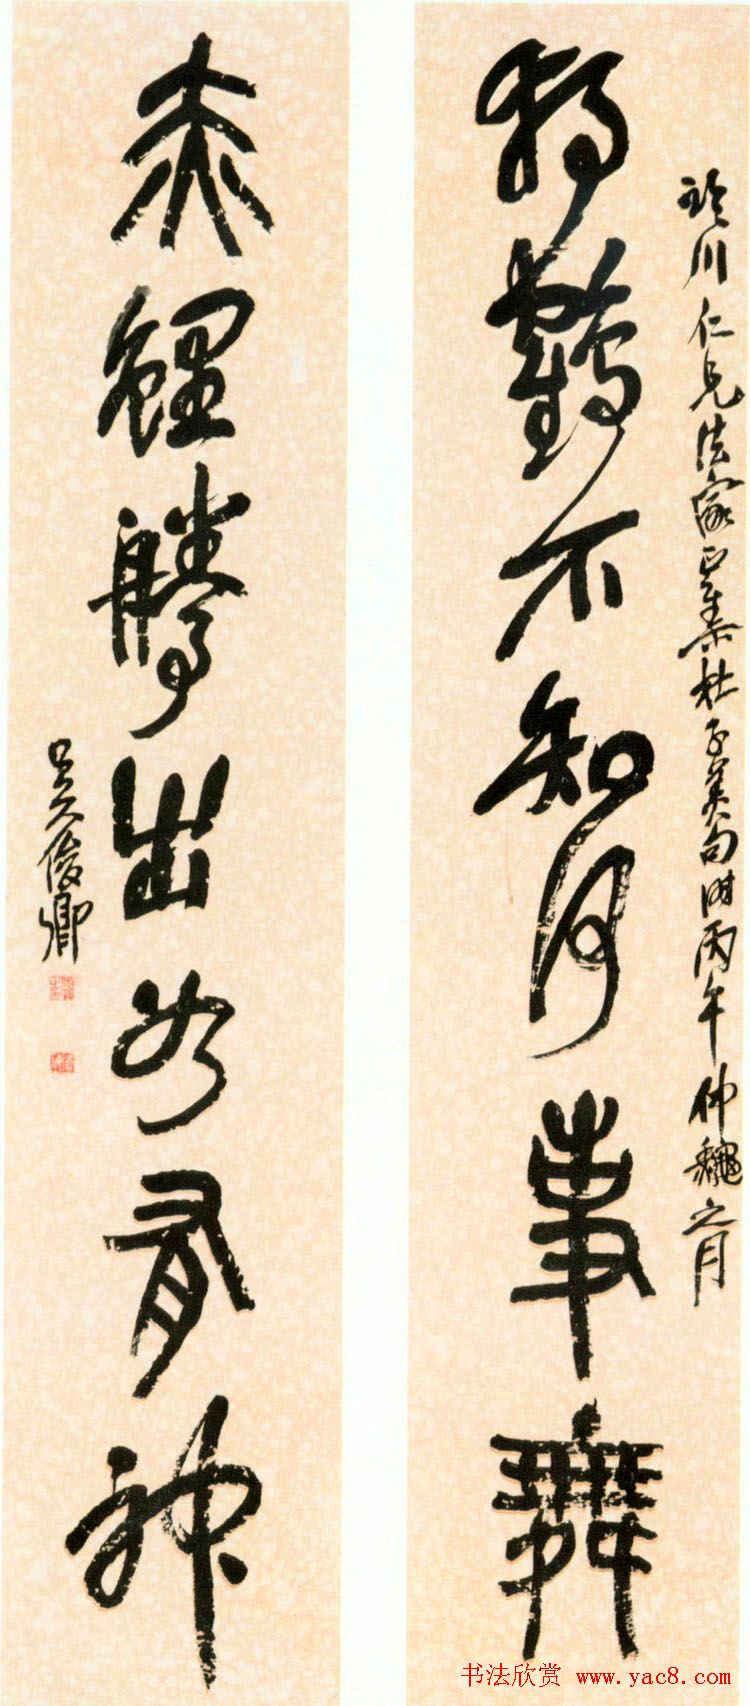 川仁兄法家正集杜子美句時丙午仲龝之月
獨鶴不知何事舞
赤鯉騰出如有神
吳俊卿
书法欣赏 www.yac8.com